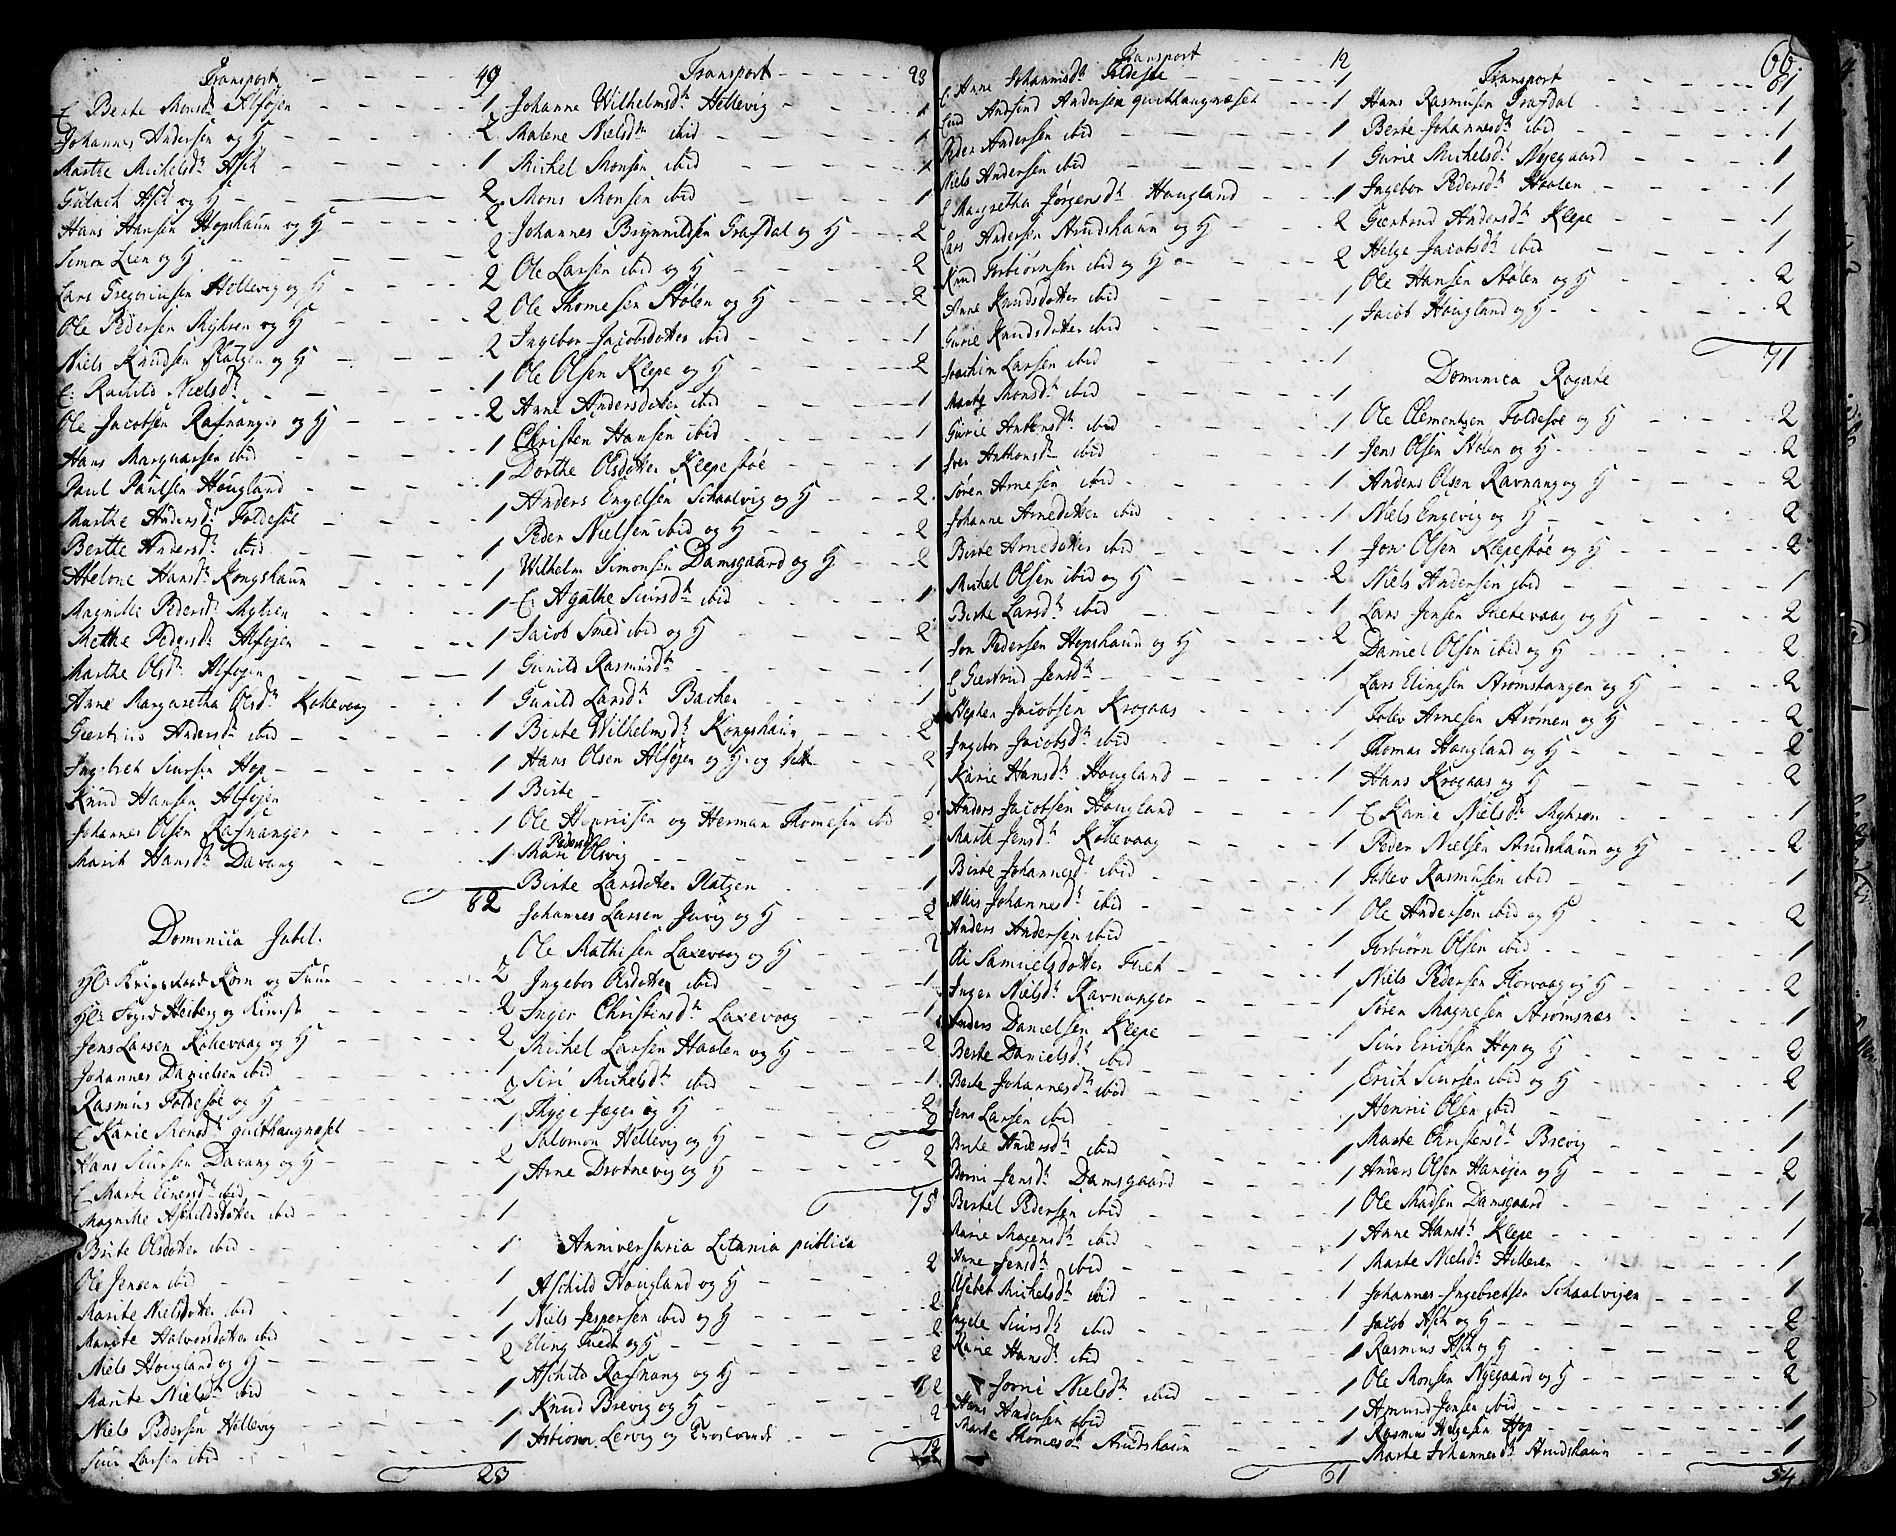 Transport - - - 49
E Berte Monsd. Alføjen - - 1
Johannes Andersen og H - - 2
Marthe Michelsd. Ask - - 1
Gutach Ask og H - - 2
Hans Hansen Hopshaun og H - - 2
Simon Lien og H - - 2
Lars Gregoriusen Hellevig og H - - 2
Ole Pedersen Myhren og H - - 2
Niels Knudsen Platzen og H - - 2
E. Rachild Nielsd. - - 1
Ole Jacobsen Rafnanger og H - - 2
Hans Marquarsen ibid - - 1
Paul Paulsen Hougland - - 1
Marthe Andersd. Foldesøe - - 1
Berthe Andersd. ibid - - 1
Abelone Hansd. Kongshaun - - 1
Magnille Pedersd. Myhren - - 1
Methe Pedersd. Alføjen - - 1
Marthe Olsd. Alføjen - - 1
Anne Margaretha Olsd. Kokevaag - - 1
Giertrud Andersd. ibid - - 1
Ingebret Siursen Hop - - 1
Knud Hansen Alføjen - - 1
Johannes Olsen Rafnanger - - 1
Marit Hansd. Davang - - 1
82
Dominica Jubil.
Hr. Krigsraad Korn og Fruu - - 2
Hr. Foged Heiberg og Kiærest - - 2
Jens Larsen Kokevaag og H - - 2
Johannes Danielsen ibid - - 1
Rasmus Foldesøe og H - - 2
E Karie Monsd. quithaugnæset - - 1
Hans Siursen Davang og H - - 2
E Marte Einersd. ibid - - 1
Magnille Aschildsdotter ibid - - 1
Brite Olsdotter ibid - - 1
Ole Jensen ibid - - 1
Marite Nielsdotter ibid - - 1
Marite Halvorsdotter ibid - - 1
Niels Hougland og H - - 2
Marite Nielsd. ibid - - 1
Niels Pedersen Hellevig - - 1
Siur Larsen ibid - - 1
23
Transport - - - 23
Johanne Wilhelmsd. Hellevig - - 1
Malene Nielsd. ibid - - 1
Michel Monsen ibid - - 1
Mons Monsen ibid - - 1
Johannes Brynnildsen Grafdal og H - - 2
Ole Larsen ibid og H - - 2
Ole Thomesen Stølen og H - - 2
Ingebor Jacobsdotter ibid - - 1
Ole Olsen Klepe og H - - 2
Anne Andersdotter ibid - - 1
Christen Hansen ibid - - 1
Dorthe Olsdotter Klepestøe - - 1
Anders Engelsen Schaalvig og H - - 2
Peder Nielsen ibid og H - - 2
Wilhelm Simonsen Damsgaard og H - - 2
E. Agathe Siursd. ibid - - 1
Jacob Smed ibid og H - - 2
Gunild Rasmusd. - - 1
Gunild Larsd. Bachen - - 1
Birte Wilhelmsd. Kongshaun - - 2
Hans Olsen Alføjen og H. og - - 2
Birte - - 1
Ole Henrichsen og Herman Thomesen ibid - - 2
Mari Pedersd. Olsvig - - 1
Birte Larsdotter Platzen - - 1
Johannes Larsen Jervig og H - - 2
Ole Mathisen Laxevaag og H - - 2
Ingebor Olsdotter ibid - - 1
Inger Christensd. Laxevaag - - 1
Michel Larsen Haalen og H - - 2
Siri Michelsd. ibid - - 1
Thyge Jæger og H - - 2
Salomon Hellevig og H - - 2
Arne Drotnevig og H - - 2
75
Anniversaria Litania publica
Aschild Hougland og H - - 2
Niels Jespersen ibid og H - - 2
Eling Tuedt og H - - 2
Aschild Rafnang og H - - 2
Knud Brevig og H - - 2
Torbiørn Lervig og - - 2
12
Transport - - - 12
E. Anne Johannisd. Foldesøe - - 1
Andfind Andersen quithaugnæset - - 1
Peder Andersen ibid - - 1
Niels Andersen ibid - - 1
E Margretha Jørgensd. Hougland - - 1
Lars Andersen Strudshaun og H - - 2
Knud Torbiørnsen ibid og H - - 2
Anne Knudsdotter ibid - - 1
Gurie Knudsdotter ibid - - 1
Joachim Larsen ibid - - 1
Marte Monsd. ibid - - 1
Gurie Antonsd. ibid - - 1
Anthonsd. ibid - - 1
Søren Arnesen ibid - - 1
Johanne Arnedotter ibid - - 1
Birte Arnedotter ibid - - 1
Michel Olsen ibid og H - - 2
Birte Larsd. ibid - - 1
Jon Pedersen Hopshaun og H - - 2
E Giertrud Jensd. - - 1
Stephen Jacobsen Krogaas - - 1
Ingebor Jacobsd. ibid - - 1
Karie Hansd. Hougland - - 1
Anders Jacobsen Hougland - - 1
Marta Jensd. Kokevaag - - 1
Birte Johannesd. ibid - - 1
Johannesd. ibid - - 1
Anders Andersen ibid - - 1
Samuelsdotter Tuet - - 1
Inger Nielsd. Ravnanger - - 1
Anders Danielsen Klepe - - 1
Berte Danielsd. ibid - - 1
Berte Johannesd. ibid - - 1
Jens Larsen ibid - - 1
Birte Andersd. ibid - - 1
Jensd. Damsgaard - - 1
Bertel Pedersen ibid - - 1
Marie Mogensd. ibid - - 1
Anne Jensd. ibid - - 1
Elsebet Michelsd. ibid - - 1
Siursd. ibid - - 1
Karie Hansd. ibid - - 1
Nielsd. ibid - - 1
Hans Andersen ibid - - 1
Marte Thomesd. Strudshaun - - 1
61
66
Transport - - - 61
Hans Rasmusen Grafdal - - 1
Berte Johannesd. ibid - - 1
Gurie Michelsd. Nygaard - - 1
Ingebor Pedersd. Haalen - - 1
Giertrud Andersd. Klepe - - 1
Helge Jacobsd. ibid - - 1
Ole Hansen Stølen og H - - 2
Jacob Hougland og H - - 2
71
Dominica Rogate
Ole Clementzen Foldesøe og H - - 2
Jens Olsen Stølen og H - - 2
Anders Olsen Ravnang og H - - 2
Niels Engevig og H - - 2
Jon Olsen Klepestøe og H - - 2
Niels Andersen ibid - - 1
Lars Jensen Tuetevaag og H - - 2
Daniel Olsen ibid og H - - 2
Lars Elingsen Strømstangen og H - - 2
Tolev Arnesen Strømen og H - - 2
Thomas Hougland og H - - 2
Hans Krogaas og H - - 2
E Karie Nielsd. Myhren - - 1
Peder Nielsen Strudshaun og H - - 2
Tollev Rasmusen ibid - - 1
Ole Andersen ibid og H - - 2
Torbiørn Olsen ibid - - 1
Niels Pedersen Horvaag og H - - 2
Søren Magnesen Strømsnes - - 1
Siur Erichsen Hop og H - - 2
Erich Siursen ibid og H - - 2
Henric Olsen ibid - - 1
Marte Christensd. Brevig - - 1
Anders Olsen Hanøjen og H - - 2
Ole Madsen Damsgaard - - 1
Anne Hansd. Klepe - - 1
Marte Nielsd. Hilleren - - 1
Johannes Ingebretsen Schaalvigen - - 1
Jacob Ask og H - - 2
Rasmus Ask og H - - 2
Ole Monsen Nygaard og H - - 2
Amund Jonsen ibid - - 1
Rasmus Helgesen Hop - - 1
Marte Johannesd. Strudshaun - - 1
54